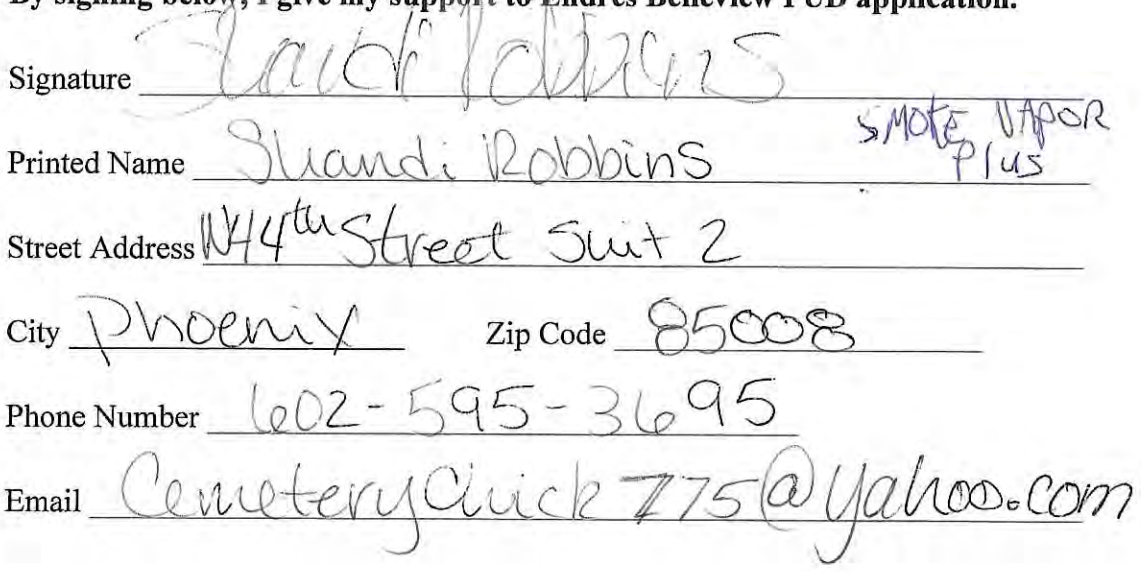 By signing below, I give my support to Endres Belleview PUD application.
Signature Shandi Robbins
SMOKE VAPOR
Printed Name Shandi Robbins Plus
Street Address N44th Street Suit 2
City Phoenix Zip Code 85008
Phone Number 602-595-3695
Email CemeteryChick775@yahoo.com